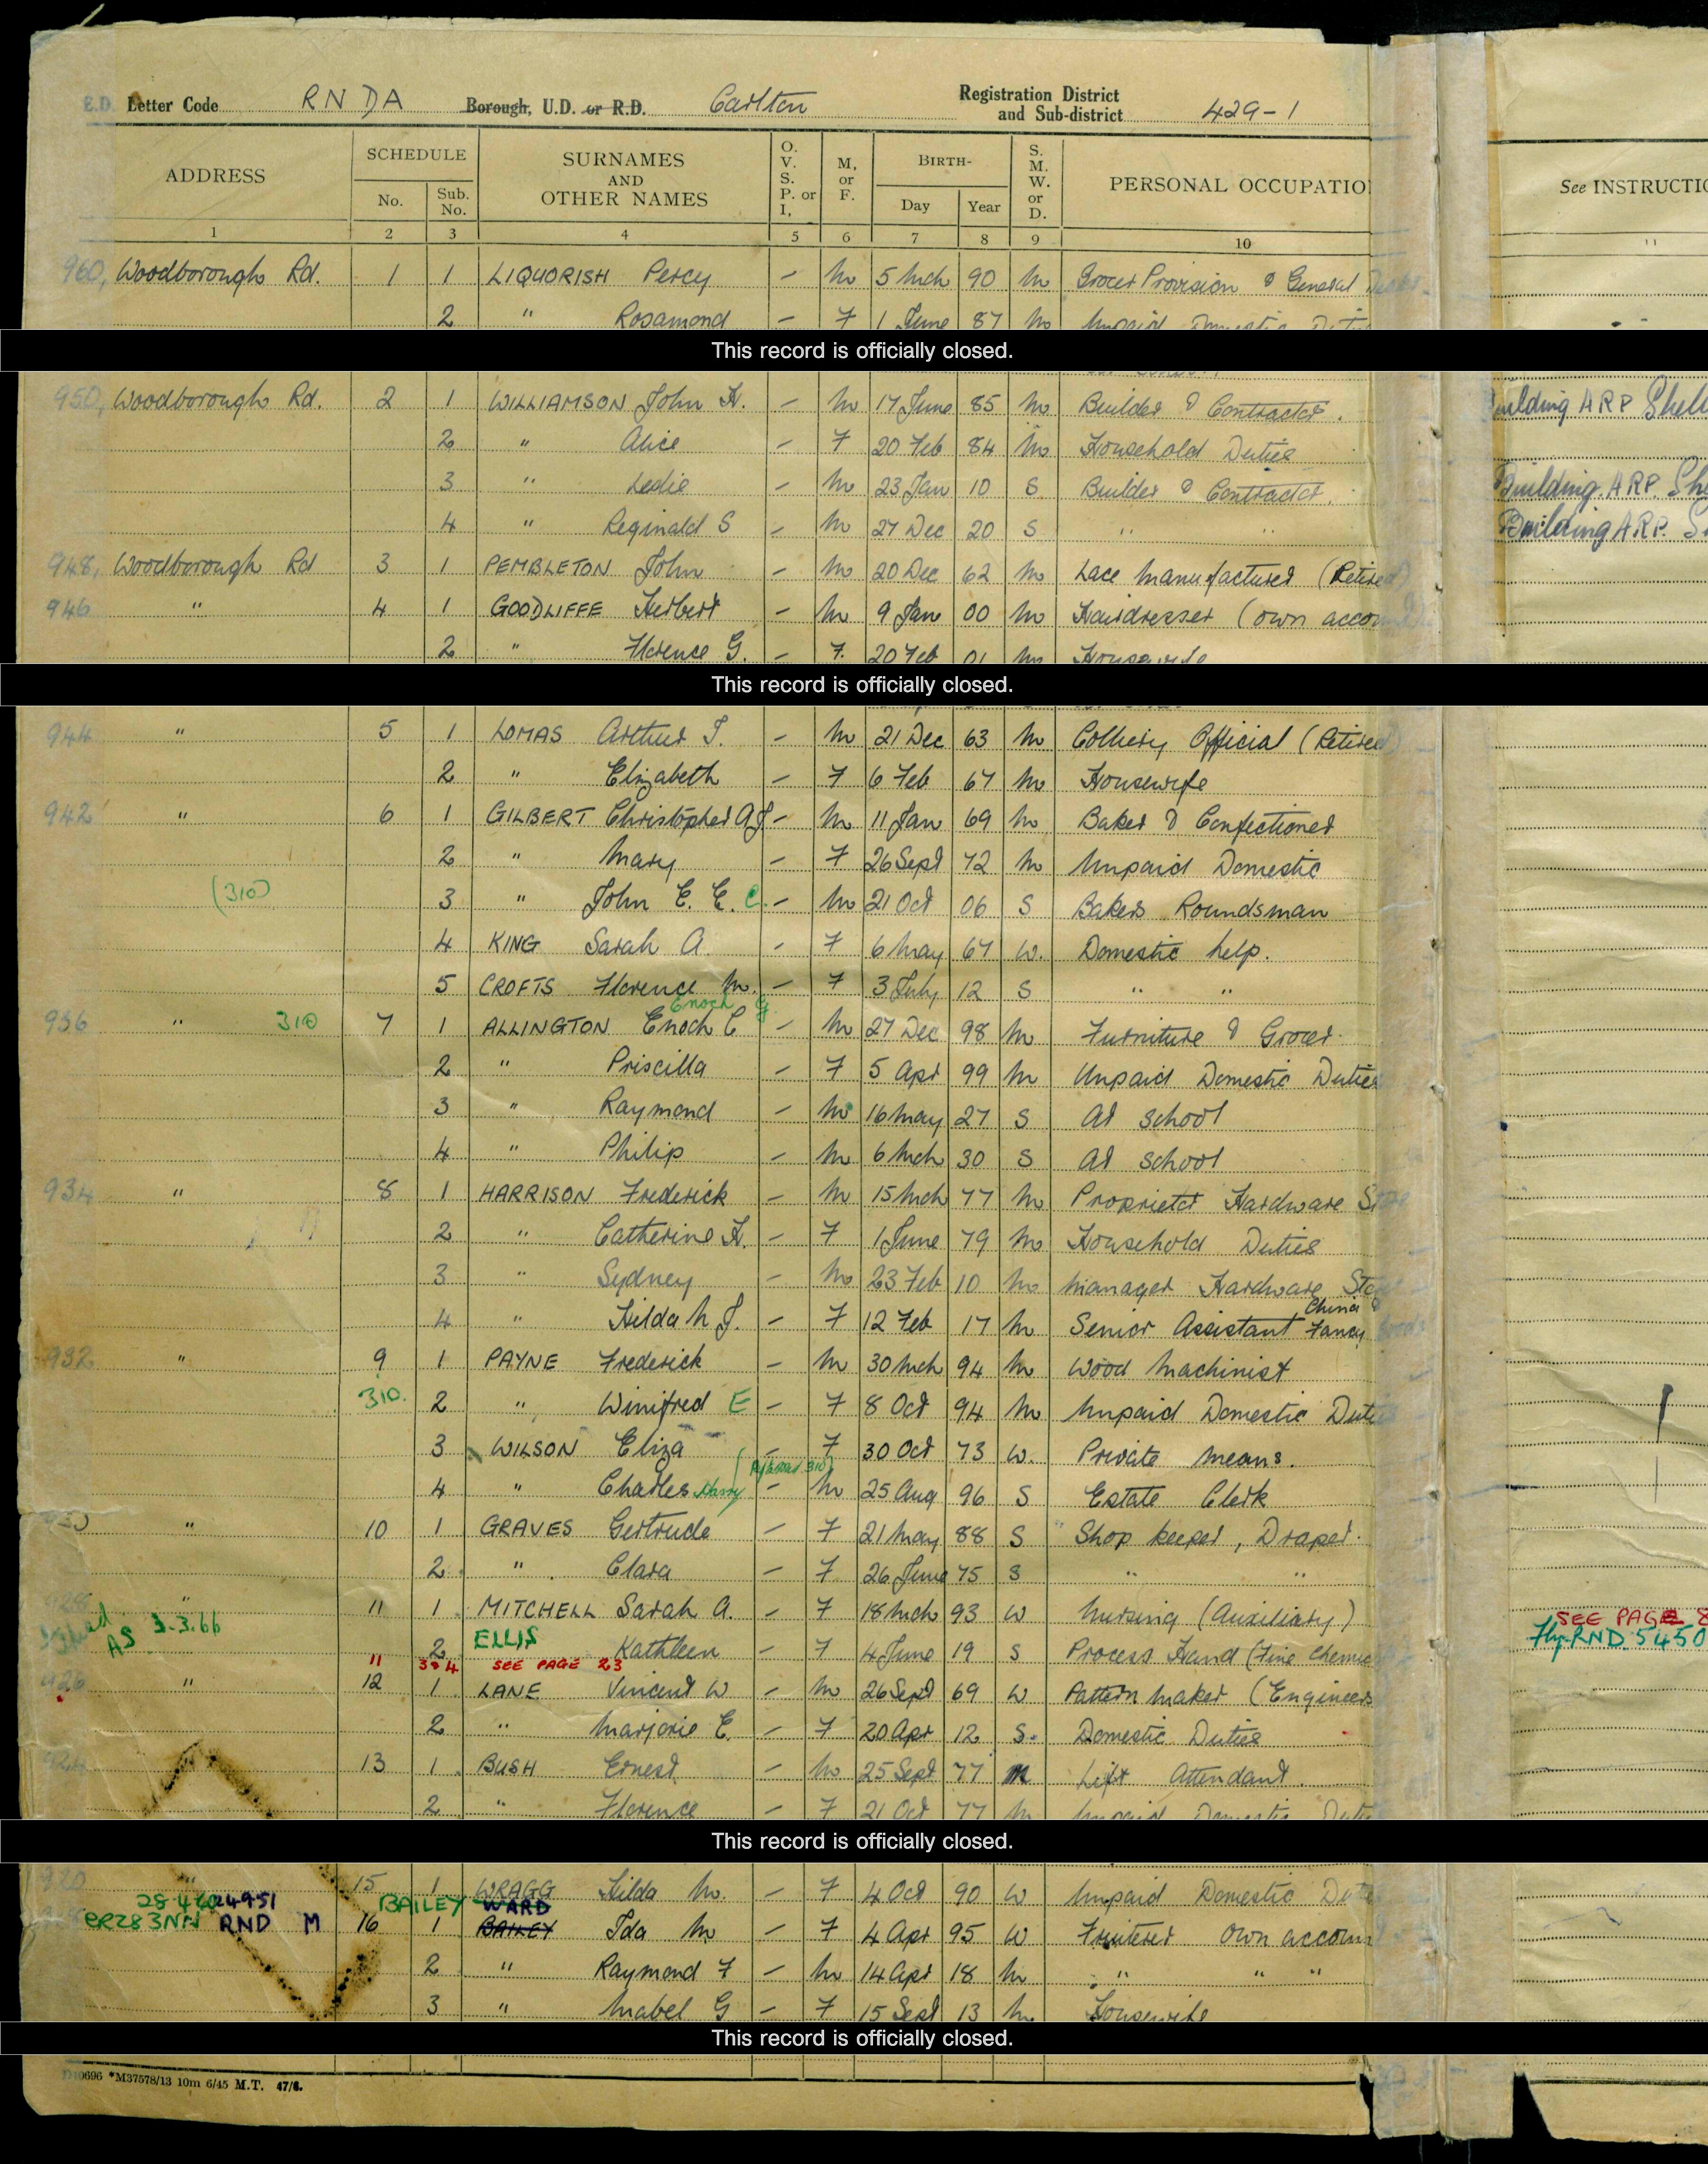 E.D. Letter Code RNDA Borough, U.D. or R.D. Carlton Registration District and Sub-district 429-1
ADDRESS SCHEDULE SURNAMES AND OTHER NAMES O. V. S. P. or I. M. or F. BIRTH- S. M. W. or D. PERSONAL OCCUPATIO See INSTRUCTI
No. Sub. No. Day Year
1 2 3 4 5 6 7 8 9 10 11
960, Woodborough Rd. 1 1 LIQUORISH Percy – M 5 Mch 90 M Grocer Provision & General Dealer
2 " Rosamond – F 1 June 87 M Unpaid Domestic Duties
This record is officially closed.
950, Woodborough Rd. 2 1 WILLIAMSON John H. – M 17 June 85 M Builder & Contractor. Building ARP Shel
2 " Alice – F 20 Feb 84 M Household Duties
3 " Leslie – M 23 Jan 10 S Builder & Contractor. Building. ARP. She
4 " Reginald S – M 27 Dec 20 S " " Building ARP. S
948, Woodborough Rd 3 1 PEMBLETON John – M 20 Dec 62 M Lace Manufacturer (Retired)
946 " 4 1 GOODLIFFE Herbert – M 9 Jan 00 M Hairdresser (own accou
2 " Florence G. – F. 20 Feb 01 M Housewife
This record is officially closed.
944 " 5 1 LOMAS Arthur T. – M 21 Dec 63 M Colliery Official (Retired
2 " Elizabeth – F 6 Feb 67 M Housewife
942 " 6 1 GILBERT Christopher A J – M 11 Jan 69 M Baker & Confectioner
2 " Mary – F 26 Sept 72 M Unpaid Domestic
(310) 3 " John E. E. C. – M 21 Oct 06 S Bakers Roundsman
4 KING Sarah A. – F 6 May 67 W. Domestic help.
5 CROFTS Florence M. – F 3 July 12 S " "
Enoch G
936 " 310 7 1 ALLINGTON Enoch C – M 27 Dec 98 M Furniture & Grocer.
2 " Priscilla – F 5 Apr 99 M Unpaid Domestic Duties
3 " Raymond – M 16 May 27 S At School
4 " Philip – M 6 Mch 30 S At School
934 " 8 1 HARRISON Frederick – M 15 Mch 77 M Proprietor Hardware Store
2 " Catherine H. – F 1 June 79 M Household Duties
3 " Sydney – M 23 Feb 10 M Manager Hardware Sto
China &
4 " Hilda M J. – F 12 Feb 17 M Senior Assistant Fancy Goods
932 " 9 1 PAYNE Frederick – M 30 Mch 94 M Wood Machinist
310. 2 " Winifred E – F 8 Oct 94 M Unpaid Domestic Duti
3 WILSON Eliza – F 30 Oct 73 W. Private Means.
4 " Charles Harry – M 25 Aug 96 S Estate Clerk
930 " 10 1 GRAVES Gertrude – F 21 May 88 S Shop keeper, Draper.
2 " Clara – F 26 June 75 S " "
928 " 11 1 MITCHELL Sarah A. – F 18 Mch 93 W Nursing (Auxiliary) SEE PAGE 8
AS 3.3.66 2 ELLIS Kathleen – F 4 June 19 S Process Hand (Fine Chemic RND 5450
11 3&4 SEE PAGE 23
926 " 12 1 LANE Vincent W – M 26 Sept 69 W Pattern Maker (Engineers
2 " Marjorie E. – F 20 Apr 12 S. Domestic Duties
924 13 1 BUSH Ernest – M 25 Sept 77 M Lift Attendant.
2 " Florence – F 21 Oct 77 M Unpaid Domestic Duti
This record is officially closed.
920 " 15 1 WRAGG Hilda M. – F 4 Oct 90 W Unpaid Domestic Dut
28.4.60 24951 BAILEY WARD
CR283NN RND M 16 1 BAILEY Ida M – F 4 Apr 95 W Fruiterer Own accoun
2 " Raymond F – M 14 Apr 18 M " " "
3 " Mabel G – F 15 Sept 13 M. Housewife
This record is officially closed.
D10696 *M37578/13 10m 6/45 M.T. 47/8.